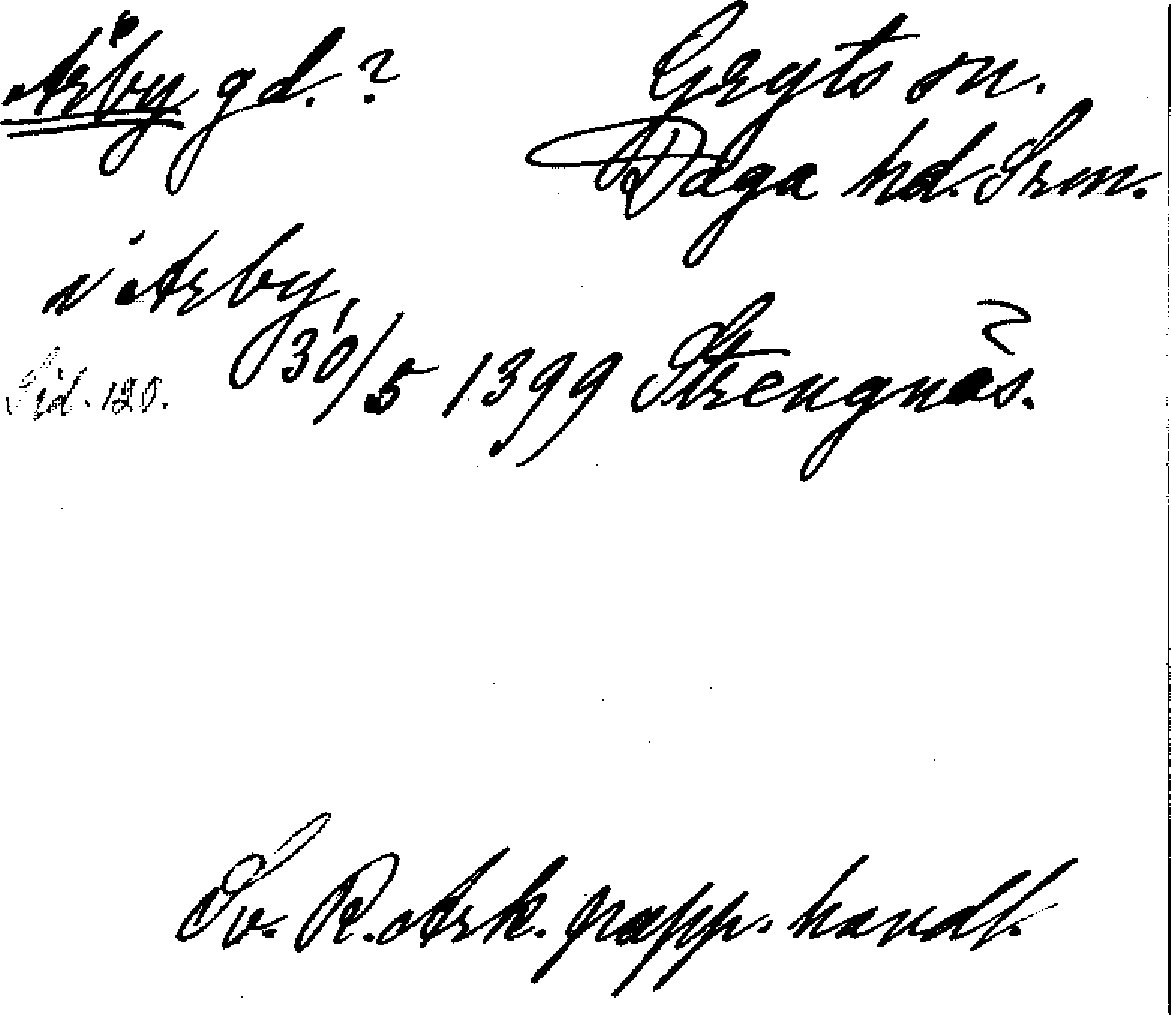 Årby gd.?
Gryts sn.
Daga hd. Srm.
i Arby,
30/5 1399 Strengnäs.
Sid. 120.
Sv. R. Ark. papp. handl.